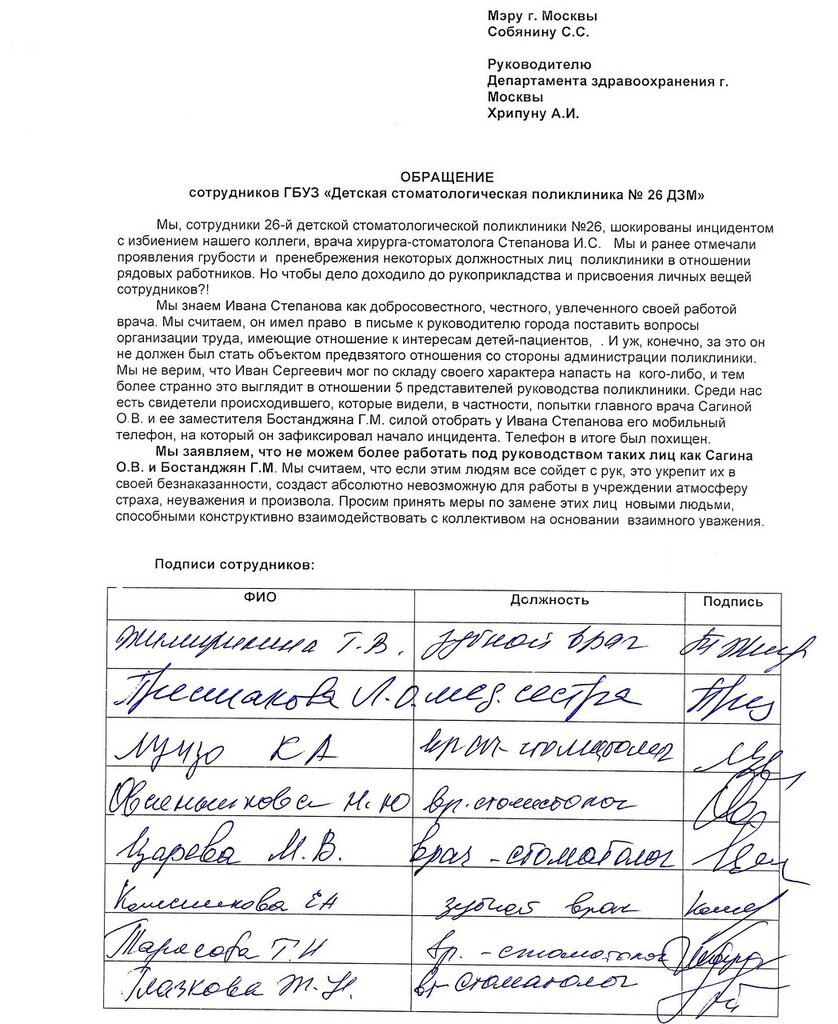 Мэру г. Москвы
Собянину С.С.
Руководителю
Департамента здравоохранения г.
Москвы
Хрипуну А.И.
ОБРАЩЕНИЕ
сотрудников ГБУЗ «Детская стоматологическая поликлиника № 26 ДЗМ»
Мы, сотрудники 26-й детской стоматологической поликлиники №26, шокированы инцидентом
с избиением нашего коллеги, врача хирурга-стоматолога Степанова И.С. Мы и ранее отмечали
проявления грубости и пренебрежения некоторых должностных лиц поликлиники в отношении
рядовых работников. Но чтобы дело доходило до рукоприкладства и присвоения личных вещей
сотрудников?!
Мы знаем Ивана Степанова как добросовестного, честного, увлеченного своей работой
врача. Мы считаем, он имел право в письме к руководителю города поставить вопросы
организации труда, имеющие отношение к интересам детей-пациентов, . И уж, конечно, за это он
не должен был стать объектом предвзятого отношения со стороны администрации поликлиники.
Мы не верим, что Иван Сергеевич мог по складу своего характера напасть на кого-либо, и тем
более странно это выглядит в отношении 5 представителей руководства поликлиники. Среди нас
есть свидетели происходившего, которые видели, в частности, попытки главного врача Сагиной
О.В. и ее заместителя Бостанджяна Г.М. силой отобрать у Ивана Степанова его мобильный
телефон, на который он зафиксировал начало инцидента. Телефон в итоге был похищен.
Мы заявляем, что не можем более работать под руководством таких лиц как Сагина
О.В. и Бостанджян Г.М. Мы считаем, что если этим людям все сойдет с рук, это укрепит их в
своей безнаказанности, создаст абсолютно невозможную для работы в учреждении атмосферу
страха, неуважения и произвола. Просим принять меры по замене этих лиц новыми людьми,
способными конструктивно взаимодействовать с коллективом на основании взаимного уважения.
Подписи сотрудников:
ФИО Должность Подпись
Т.В. зубной врач
Л.О. мед. сестра
К А врач-стоматолог
Н.Ю вр. стоматолог
Царева М.В. врач-стоматолог
Е Н зубной врач
Тарасова Т.Н вр. - стоматолог
Глазкова Ж.Н. вр стоматолог